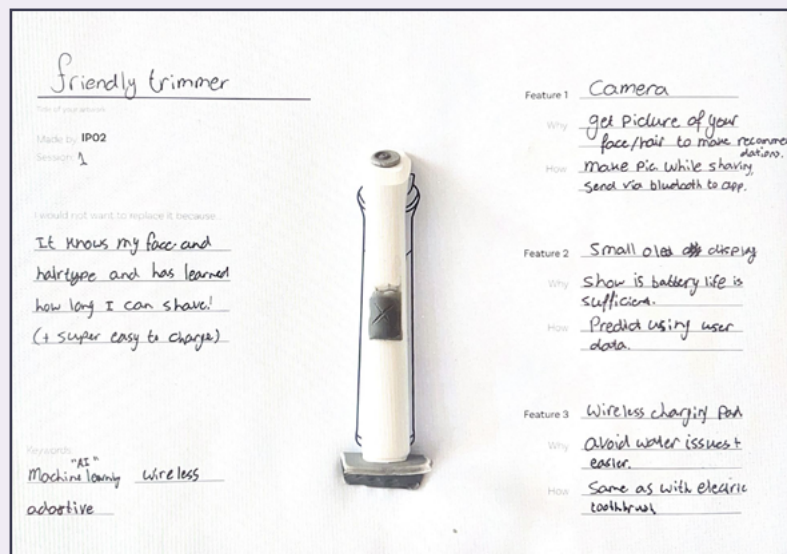 friendly trimmer
Title of your artwork
Made by IP02
Session: 1
I would not want to replace it because...
It knows my face and
hairtype and has learned
how long I can shave!
(+ super easy to charge)
Keywords
"AI"
Machine learning wireless
adaptive
Feature 1 Camera
Why get picture of your
face/hair to make recommen
dations.
How make pic while shaving,
send via bluetooth to app.
Feature 2 Small oled display
Why show is battery life is
sufficient.
How Predict using user
data.
Feature 3 Wireless charging Pad
Why avoid water issues +
easier.
How Same as with electric
toothbrush